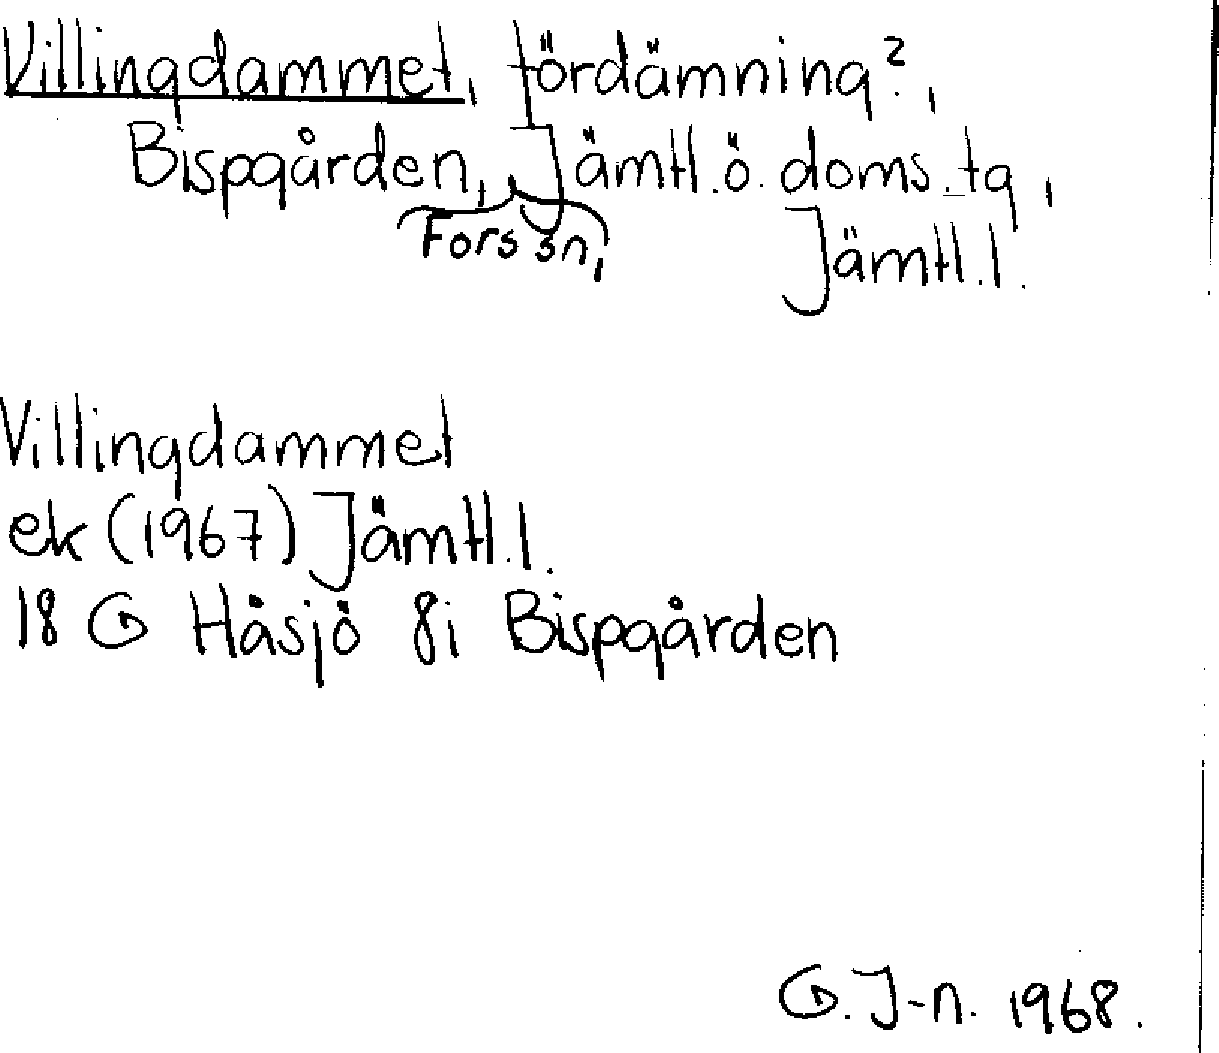 Villingdammet, fördämning?,
Bispgården, Jämtl.ö. doms.tg,
Fors sn,
Jämtl.l.
Villingdammet
ek (1967) Jämtl.l.
18 G Håsjö 8i Bispgården
G. J-n. 1968.